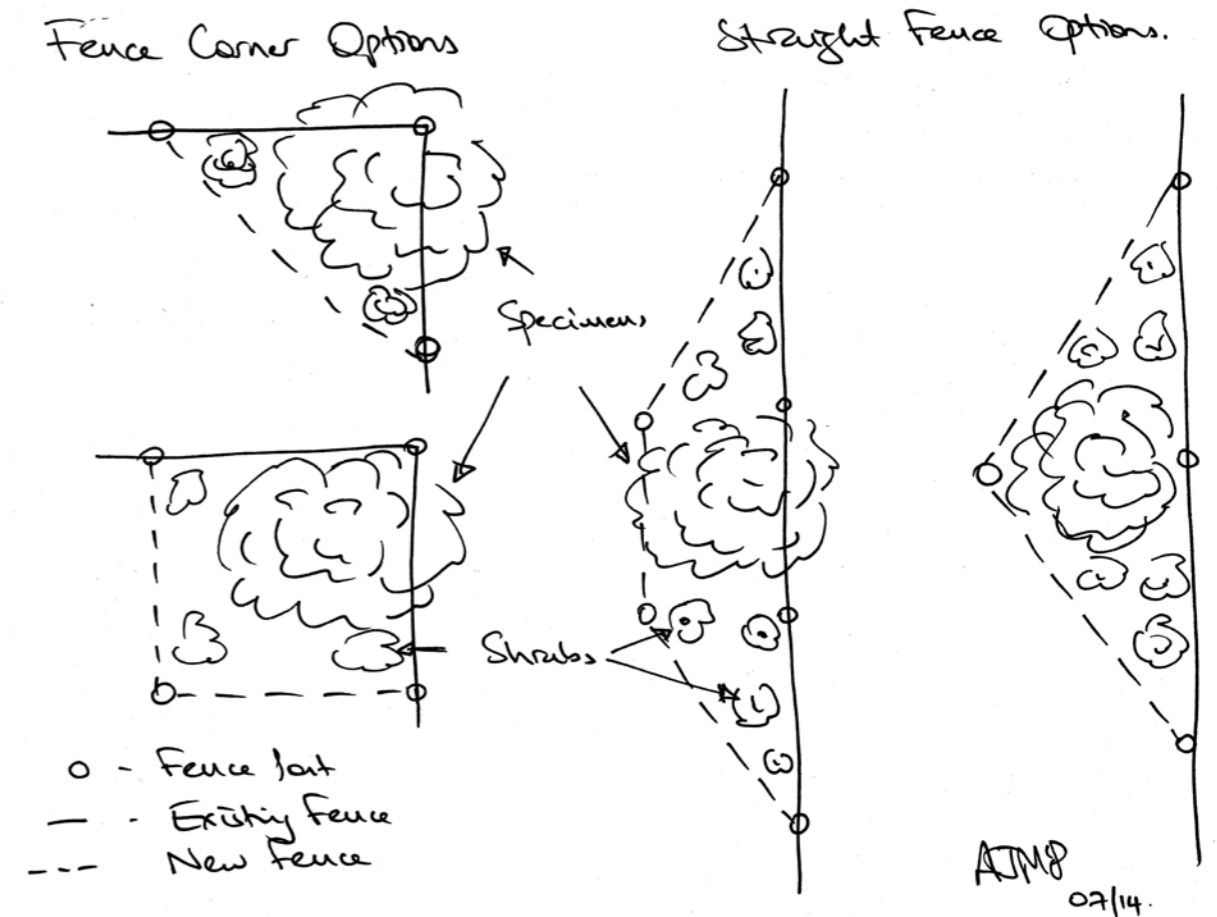 Fence Corner Options
Straight Fence Options.
Specimens
Shrubs
o - Fence Post
— - Existing Fence
--- - New Fence
AJMB
07/14.